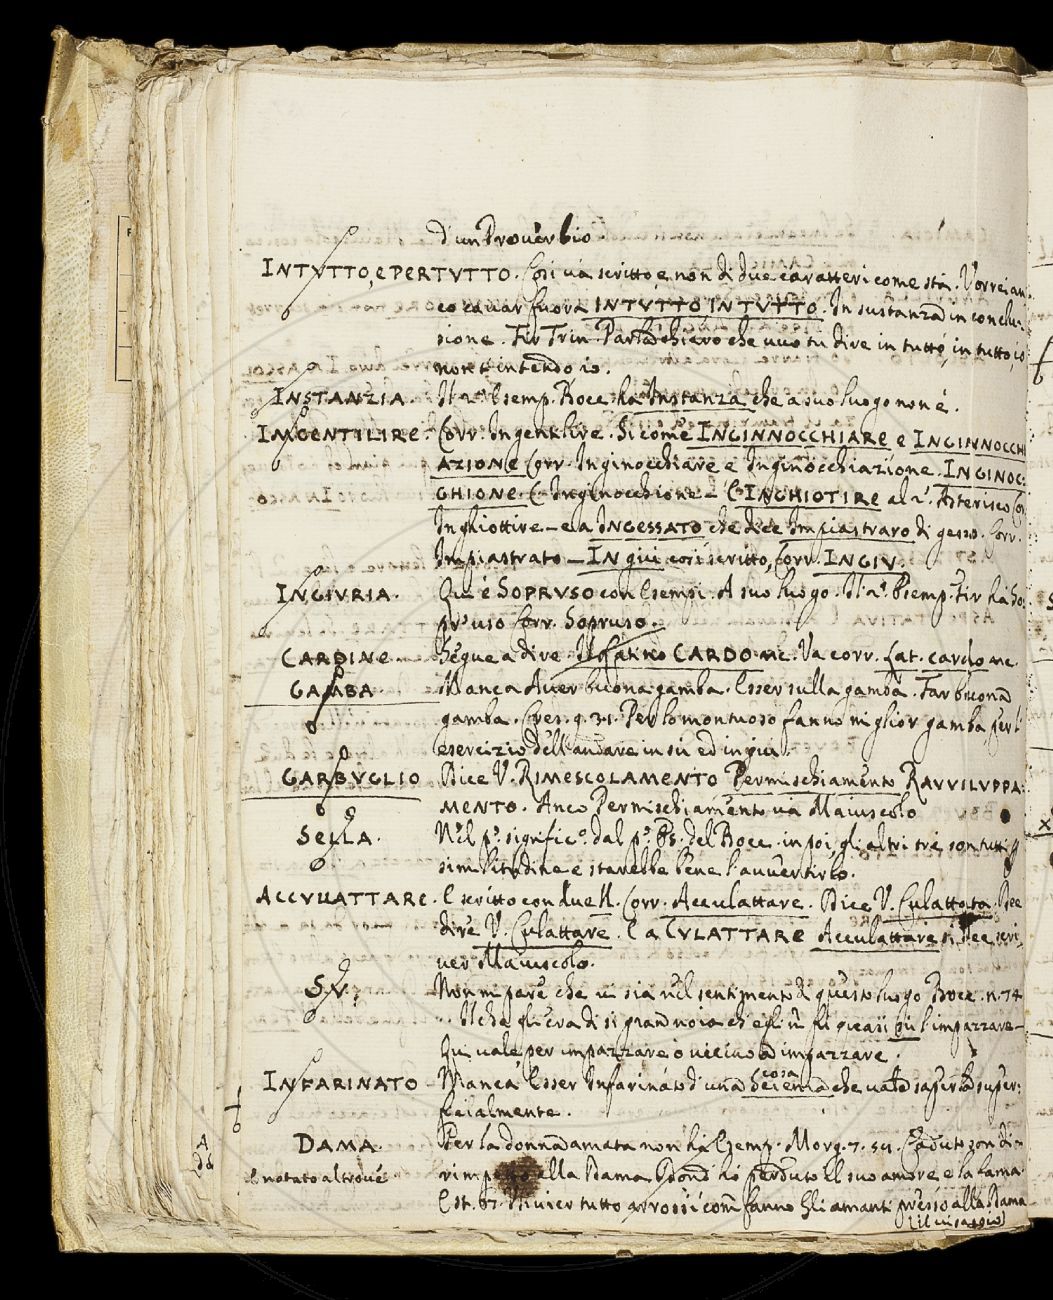 d'un Proverbio.
INTVTTO, e PERTVTTO. Cosi và scritto e non di due caratteri come stà. Vorrei an-
co cavar fuora INTVTTO INTVTTO. In sustanza in conclu-
sione. Fir Trin. Parla chiero che vuo tu dire in tutto, in tutto, io
non t'intendo io.
INSTANZIA. Il 2° Esemp. Bocc. ha Instanza che a suo luogo non é.
INGENTILIRE. Corr. Ingentilire. Si come INGINNOCCHIARE e INGINNOCCHI
AZIONE Corr. Inginocchiare e Inginocchiazione. INGINOC-
CHIONE. C. Inginocchione – E INGHIOTIRE al 2°. Asterisco Cor
Inghiottire – e a INGESSATO che dice Impiastraro di gesso. Corr.
Impiastrato – IN giú cosi scritto, Corr. INGIV.
INGIVRIA. Qui é SOPRVSO con Esempi. A suo luogo. Il 2° Esemp. Fir ha So
pr'uso Corr. Sopruso.
CARDINE Segue a dire Il latino CARDO me. Va corr. Lat. cardo me.
GAMBA. Manca Aver buona gamba. Esser sulla gamba. Far buona
gamba. Cres. 9. 31. Perlo montuoso fanno miglior gamba per l'
esercizio dell'andare in sù ed in giù.
GARBVGLIO Dice V. RIMESCOLAMENTO Permischiamento RAVVILVPPA-
MENTO. Anco Permischiamento và Maiuscolo
SELLA. Nel p°. signific°. dal p°. Es. del Bocc. in poi, gli altri tré son tutti p
similitudine e starebbe bene l'avvertirlo.
ACCVLLATTARE. E scritto con due ll. Corr. Acculattare. Dice V. Culattata. Dee
dire V. Culattare. E a CVLATTARE Acculattare si dee scri
ver Maiuscolo.
SV. Non mi pare che vi sia nel sentimento di questo luogo Bocc. n. 74
Il che gli era di si gran noia ch'egli n' fù quasi sù l'impazzare –
Qui vale per impazzare o vicino ad impazzare.
INFARINATO Manca Esser Infarinato d'una scienza che vale saperla super-
cosa
ficialmente.
DAMA Per la donna amata non hà Esemp. Morg. 7. 54. Caduto son di-
E notato altrove rimp ella Dama Dond' hò perduto il suo amore e la fama
Est. 67. Ulivier tutto arrossi com fanno Gli amanti presso alla Dama
il visaggio